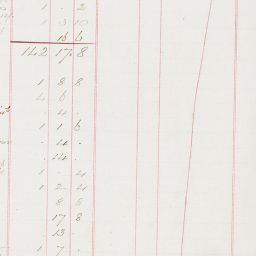 1 . 2
1 3 10
13 6
142 17 8
1 8 8
4 6
. 4 .
1 1 6
. 4 .
. 14 .
1 . 4
1 2 4
8 8
17 8
. 13 .
1 7 .